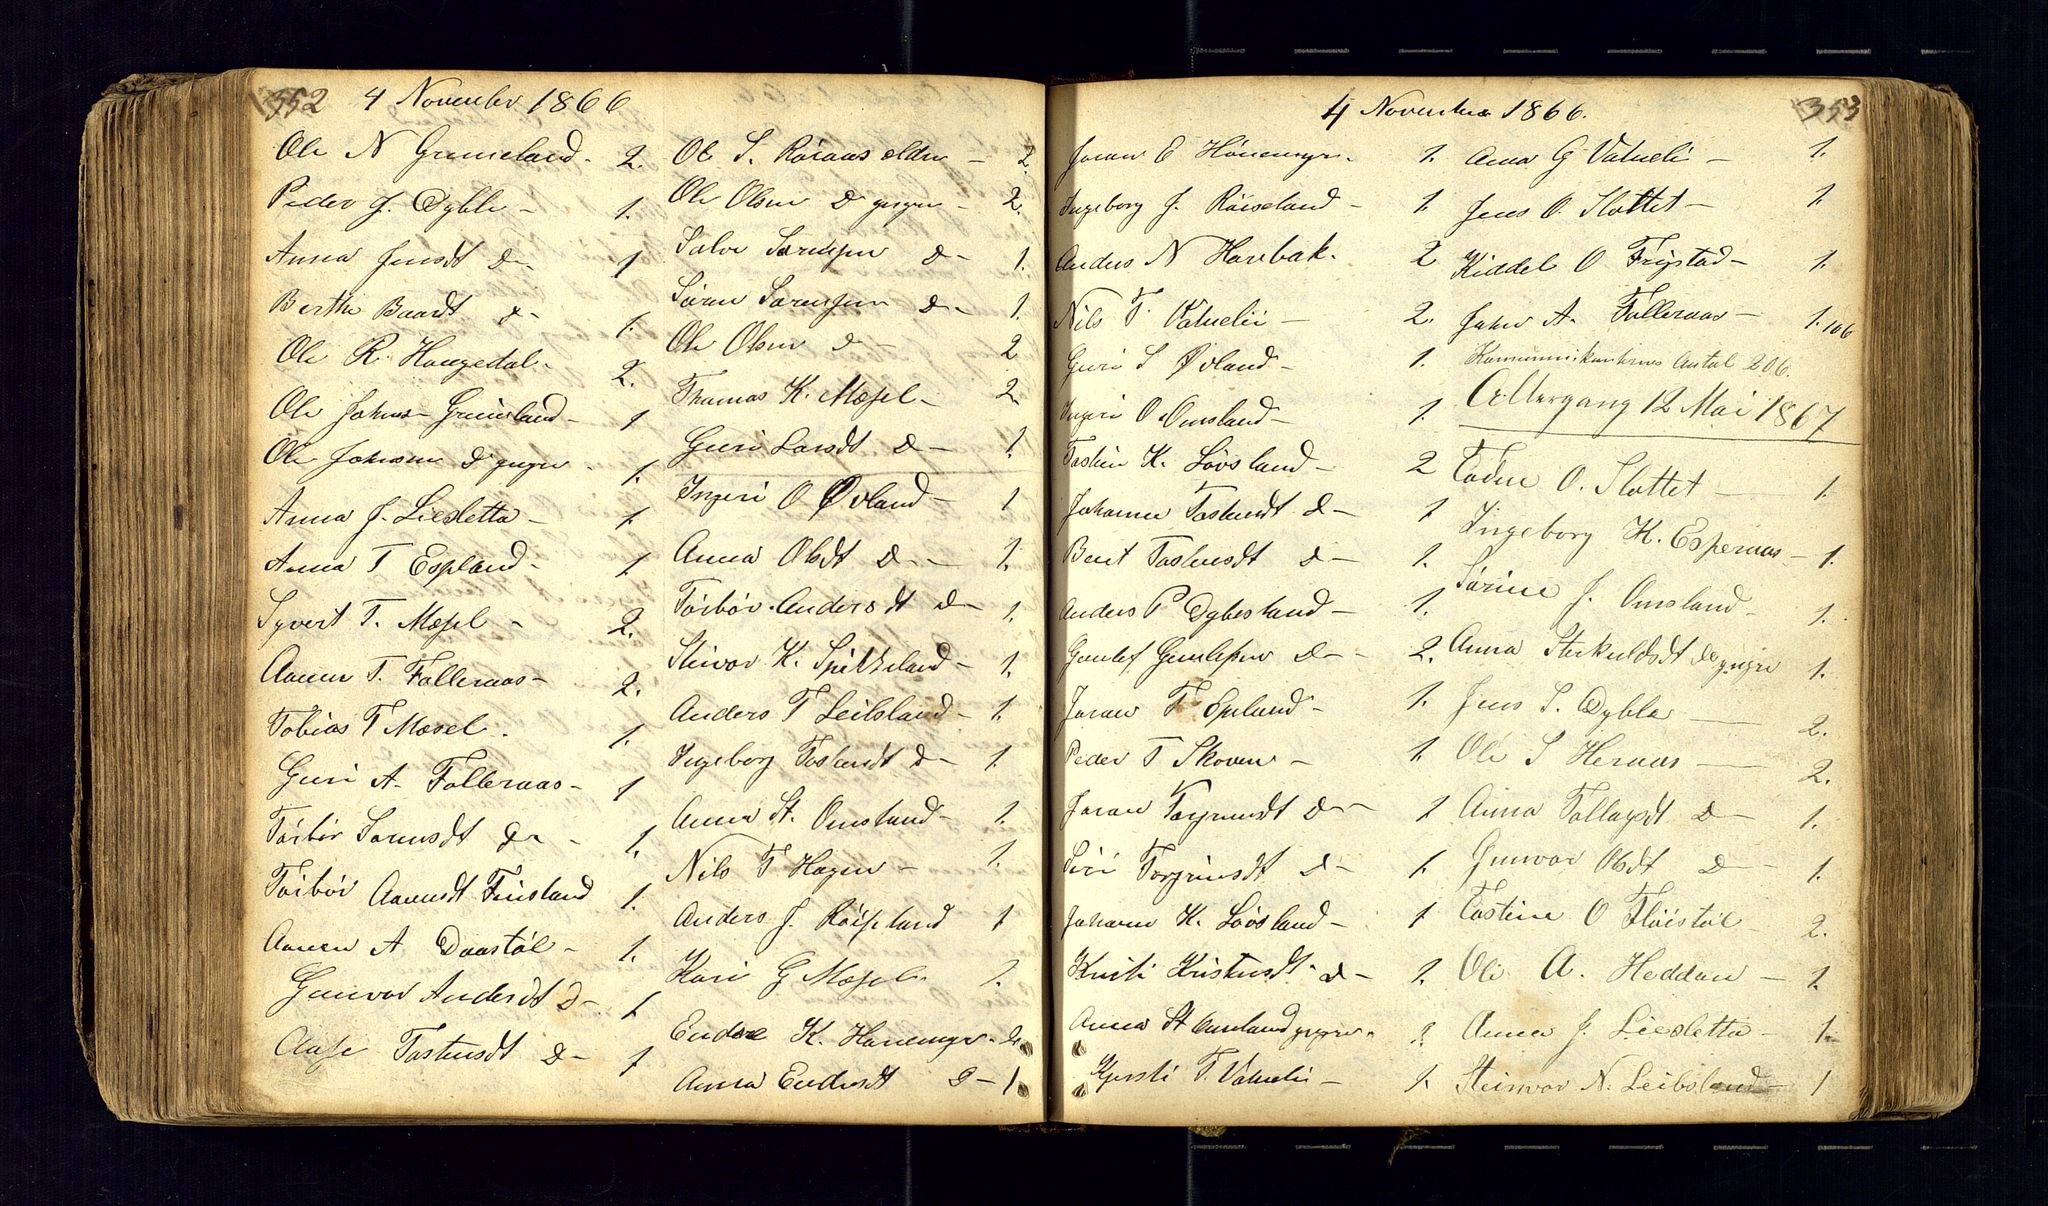 352 4 November 1866
Ole N Grimeland - 2.
Peder J. Dyble - 1.
Anna Jensdt do - 1
Berthe Baardt do - 1.
Ole R. Haugedal - 2.
Ole Johns - Grimeland - 1
Ole Johnsen do yngre - 1.
Anna J. Liesletta - 1.
Anna T Espland - 1
Syvert T. Mæsel - 2.
Aanen T. Falleraas - 2.
Tobias T Mæsel - 1.
Guri A. Falleraas - 1
Tørbør Sørensdt do - 1.
Tørbør Aanensdt Finsland 1.
Aanen A Daastøl - 1.
Gunvor Andersdt do - 1
Aase Tostensdt do - 1
Ole S. Røiraas eldre - 2
Ole Olsen do yngre - 2.
Salve Sørensen do - 1.
Søren Sørensen do - 1.
Ole Olsen do - 2
Thomas K. Mæsel - 2
Guri Larsdt do - 1.
Ingeri O Øvland - 1
Anna Olsdt do - 1.
Tørbør Andersdt do - 1.
Steivor K. Spikkeland - 1.
Anders T Leibsland - 1.
Ingeborg Tostensdt do - 1.
Anna St. Omsland - 1.
Nils T Hagen - 1.
Anders J. Røiseland 1
Kari G Mæsel 1.
Endre K. Honnemyr - 2
Anna Endresdt do - 1
4 November 1866. 353
Joran E Honnemyr - 1.
Ingeborg J. Røiseland - 1
Anders N Havbak - 2
Nils T. Vatnelii - 2.
Guri S Øvland - 1.
Ingeri O. Omsland - 1.
Tosten K. Løvsland - 2
Johanne Tostensdt do - 1
Berit Tostensdt do - 1.
Anders P Dybesland - 1.
Guntlef Gunlefsen do - 2.
Joran T. Epeland - 1.
Peder T Skoven - 1.
Joran Torgrimsdt do - 1
Siri Torgrimsdt do - 1.
Johann K. Løvsland - 1
Kristi Kristensdt do - 1.
Anna St Omsland yngre - 1
Kjersti T. Vatnelii - 1.
Anna G Vatnelii - 1.
Jens O. Slottet - 1.
Kiddel O Frigstad - 1.
John A. Falleraas - 1. 106
Kommunikanternes Antal 206.
Altergang 12 Mai 1867
Todne O. Slottet - 1.
Ingeborg K. Esperaas - 1.
Sørine J. Omsland - 1.
Anna Sterkuldsdt do yngre 1.
Jens S. Dyble - 2.
Ole S Heraas - 2.
Anna Tallagsdt do - 1.
Gunvor Olsdt do - 1.
Tostine O Fløistøl 2.
Ole A. Heddan - 1.
Anna J. Liesletta - 1.
Steinvor N. Leibsland - 1